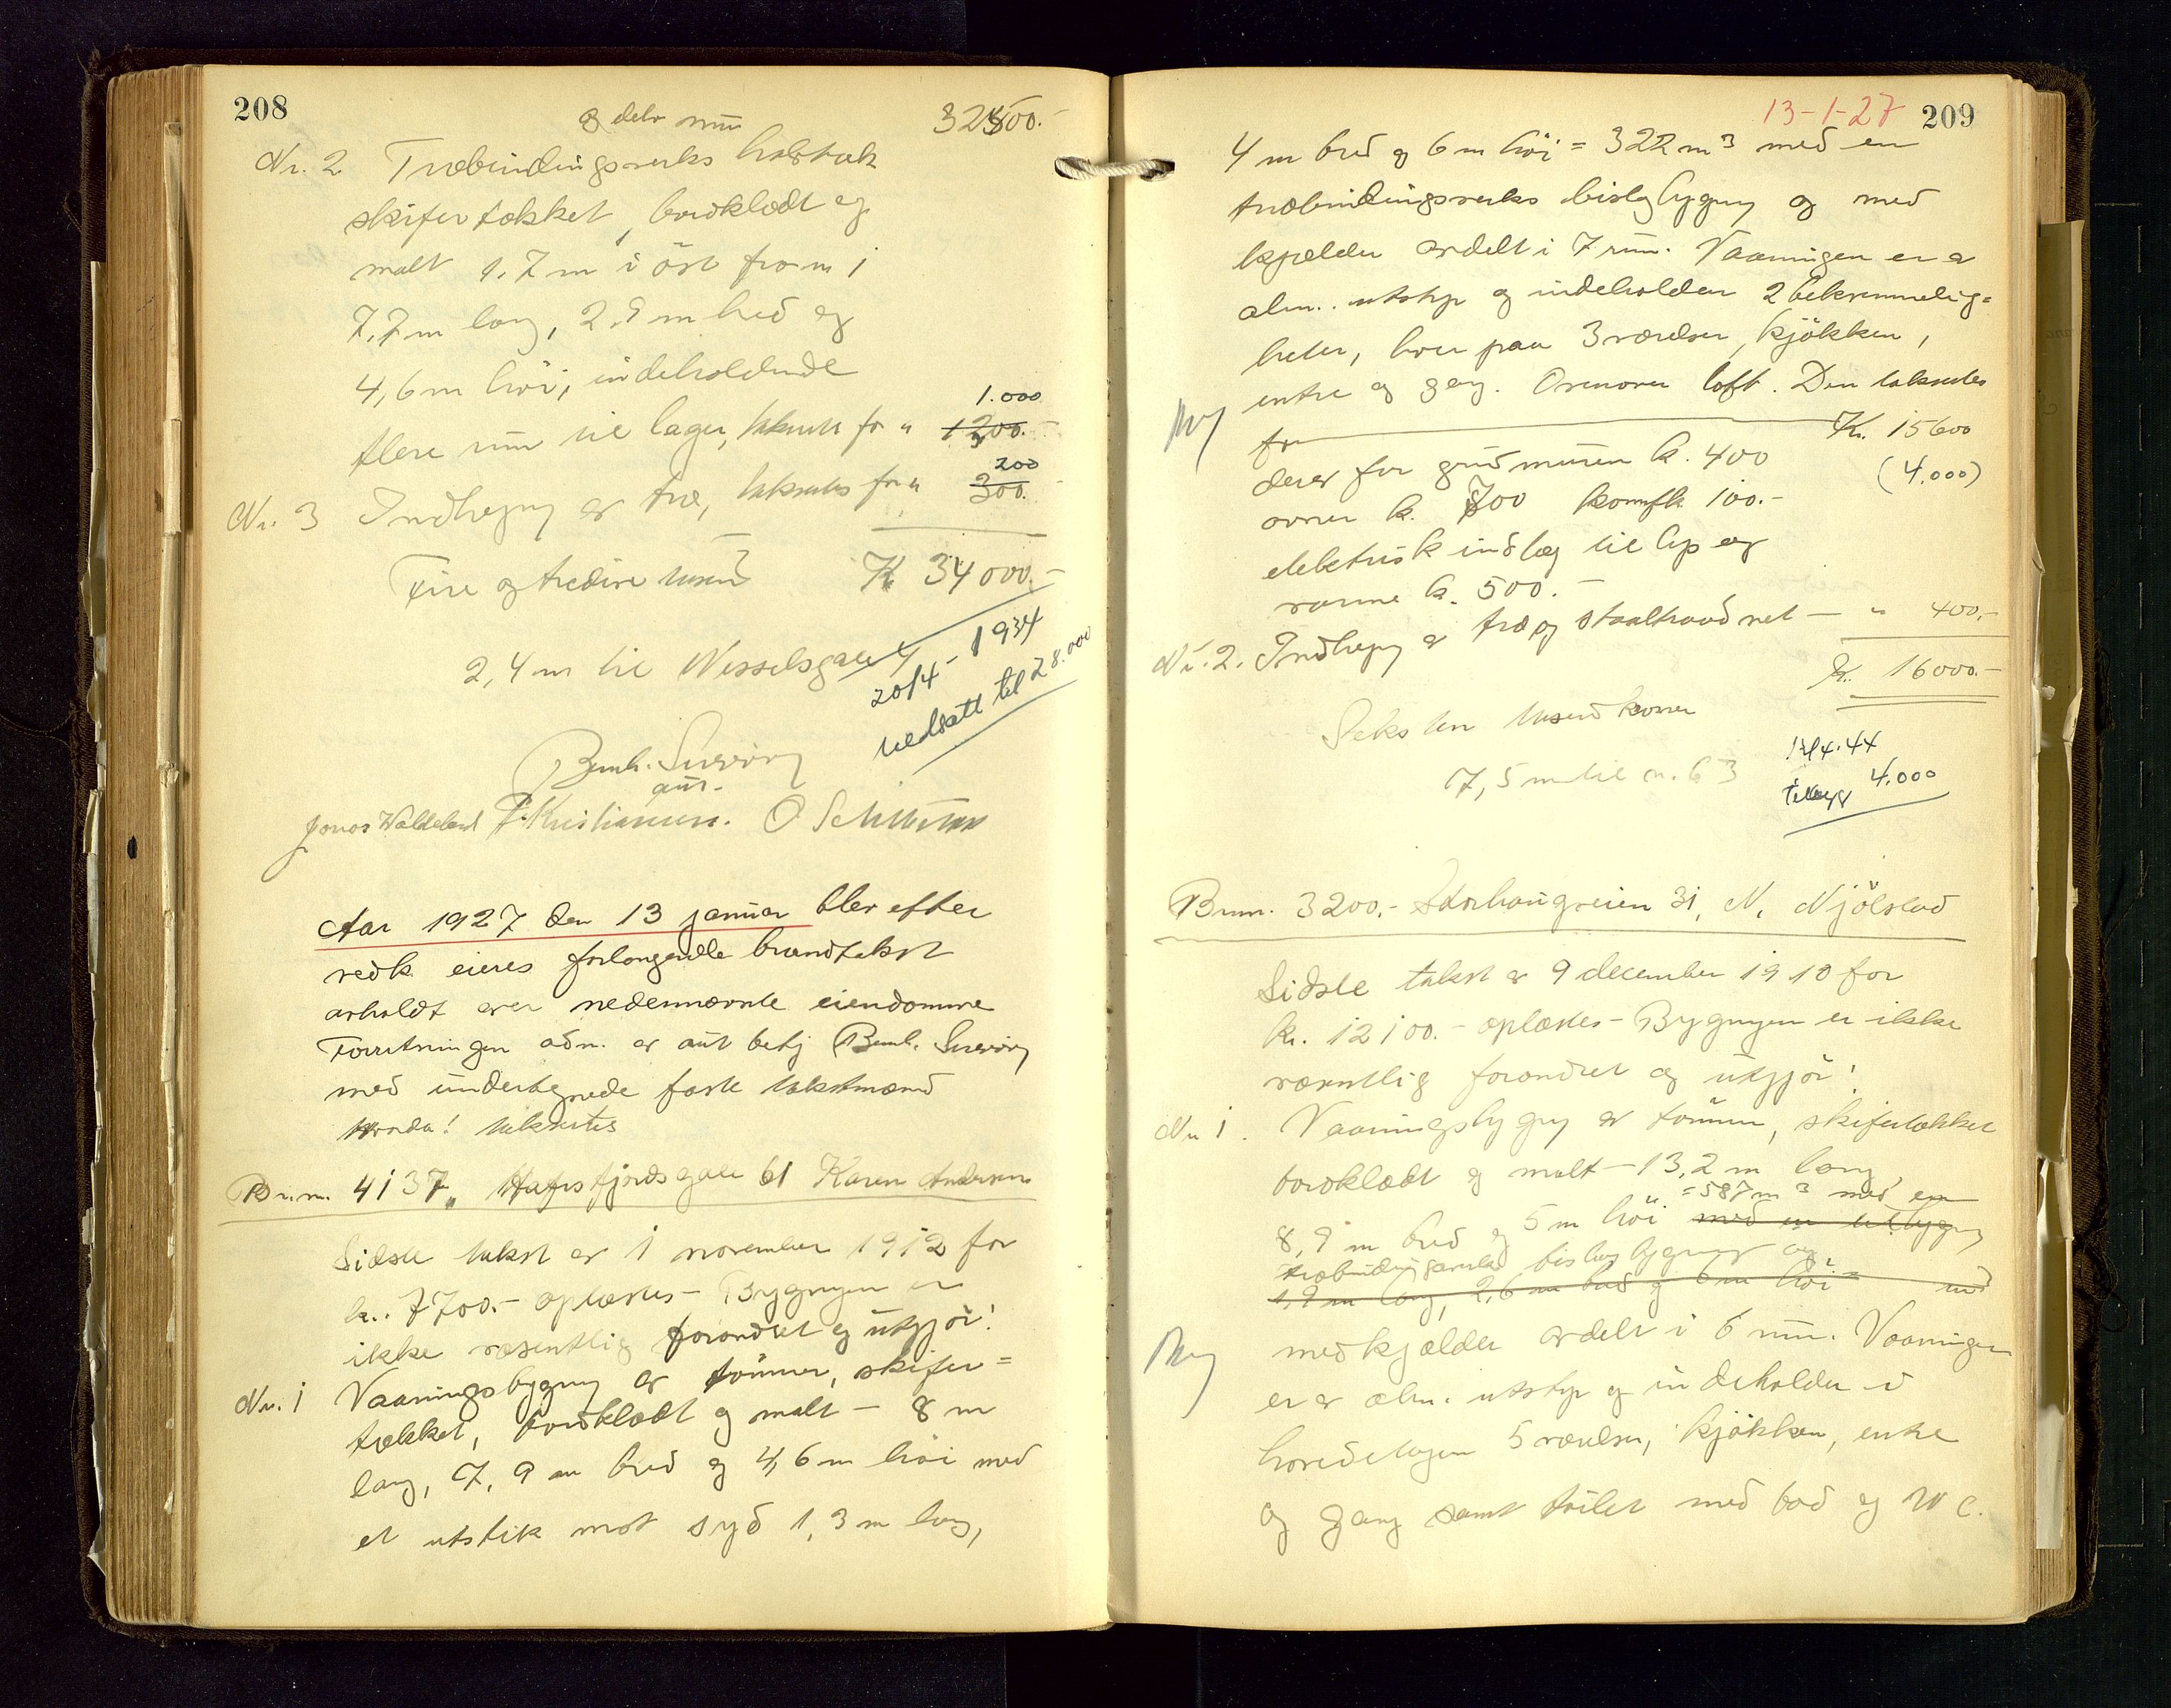 208
og delv rum 32800.-
Nr. 2 Træbindingsverks halvtak
skifertækket, bordklædt og
malt 1.7 m i öst fra m 1
7.7 m lang, 2.9 m bred og
4,6 m höi, indeholdende
1.000
flere rum til lager, takseres for " 1200.-
200
Nr. 3 Indhegning av træ, takseres for " 300.-
Fire og tredive tusend K 34000.-
2,4 m til Wesselsgate 4
20/4 - 1934
nedsatt til 28.000
Bernh. Sivering
aut.
Jonas Waldeland F. Kristiansen. O Schiemann
Aar 1927 den 13 januar blev efter
vedk. eieres forlangende brandtakst
avholdt over nedennævnte eiendomme
Forretningen adm. av aut betj Bernh. Sivering
med undertegnede faste takstmænd
takseres
Br.nr. 4137. Hafrsfjords gate 61 Karen Andersen
Sidste takst av 1 november 1912 for
kr. 7700.- oplæstes - Bygningen er
ikke væsentlig forandret og utgjör!
Nr. 1 Vaaningsbygning av tömmer, skifer=
tækket, bordklædt og malt - 8 m
lang, 7,9 m bred og 4,6 m höi med
et utstik mot syd 1,3 m lang,
13-1-27 209
4 m bred og 6 m höi = 322 m3 med en
træbindingsverks bislagbygning og med
kjælder avdelt i 7 rum. Vaaningen er av
alm. utstyr og indeholder 2 bekvemmelig=
heter, hver paa 3 værelser, kjökken,
entre og gang. Ovenover loft. Den takseres
for Kr. 15600
derav for grundmuren k. 400 (4.000)
ovner k. 700 komfk 100.-
elektrisk indlæg til lys og
varme k. 500.-
Nr. 2. Indhegning av træ og staaltraadnet - " 400.-
K. 16000.-
Seksten tusend kroner
7,5 m til n. 63
17/4.44
tillegg 4.000
Brnr. 3200.- Storhaugveien 31, N. Njölstad
Sidste takst av 9 december 1910 for
kr. 12100.- oplæstes - Bygningen er ikke
væsentlig forandret og utgjör!
Nr 1. Vaaningsbygning av tömmer, skifertækket
bordklædt og malt - 13,2 m lang,
= 587 m3 med en
8,9 m bred og 5 m höi med en utbygning
træbindingsverks bislagbygning og
1,9 m lang, 2,6 m bred og 6 m höi = med
med kjælder avdelt i 6 rum. Vaaningen
er av alm. utstyr og indeholder i
hovedetagen 5 værelser, kjökken, entre
og gang samt toilet med bad og W C.